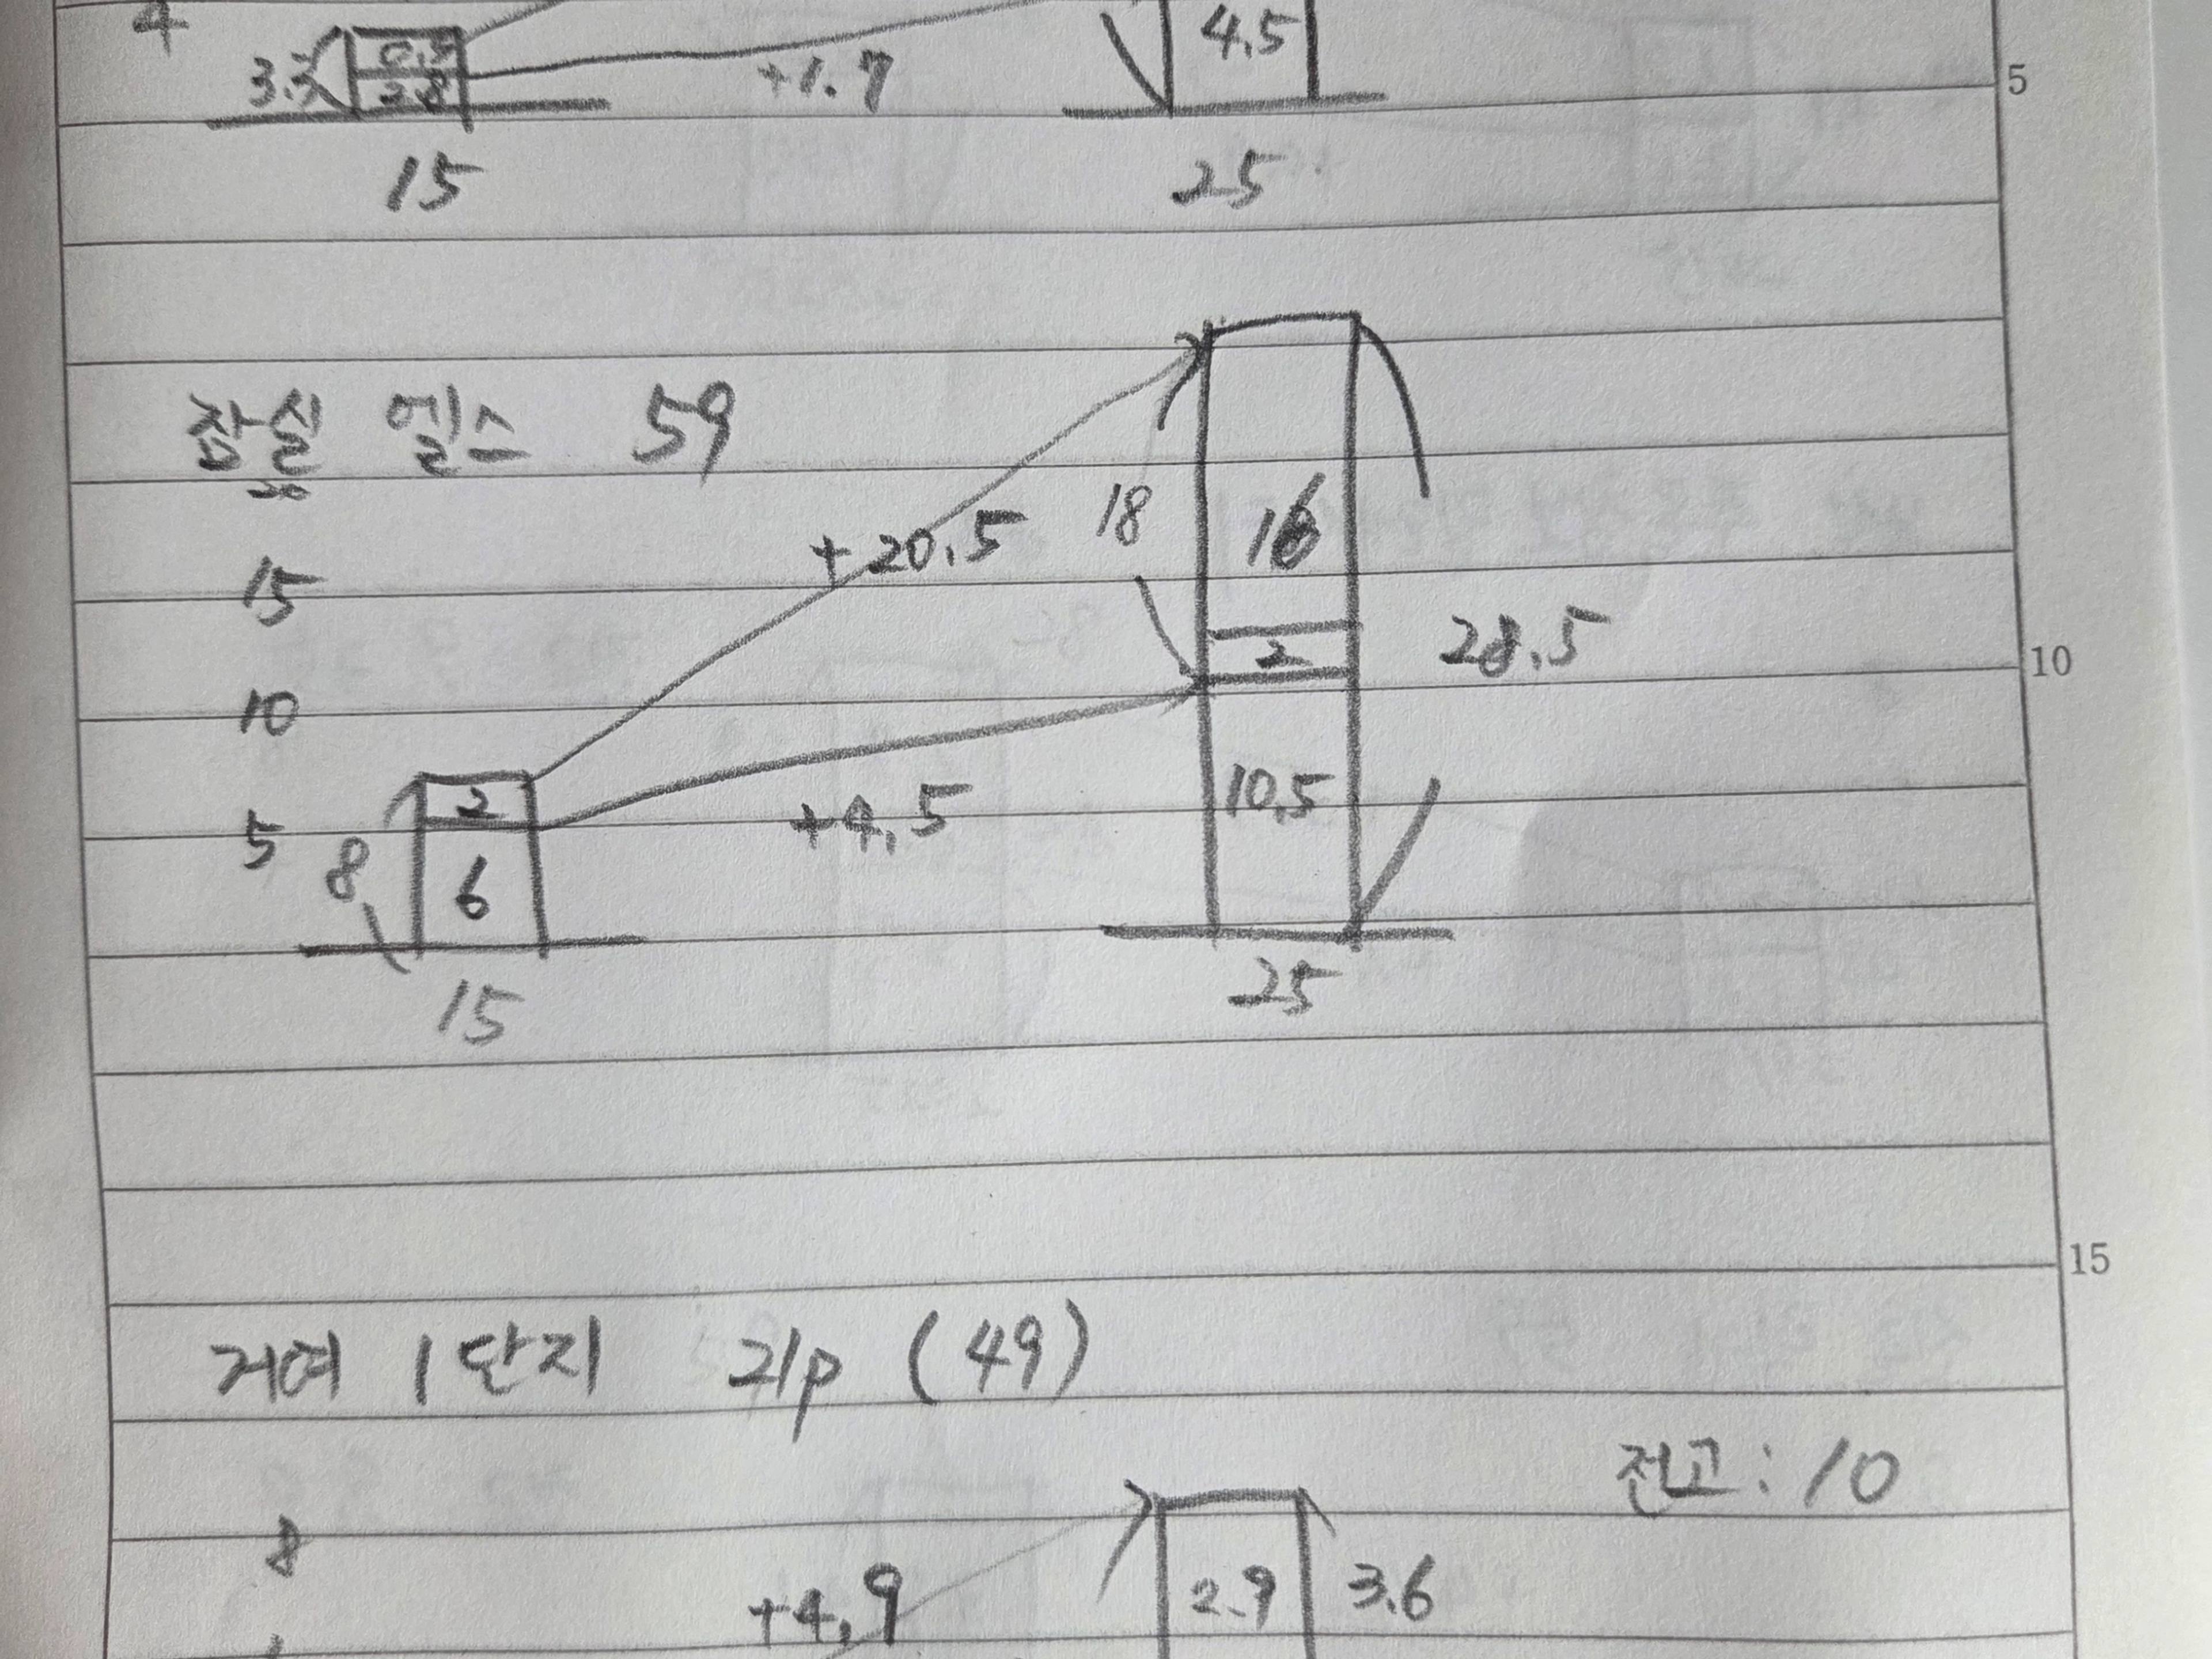 4
0.5
3.3
2.8
+1.7
4.5
5
15
25
잠실 엘스 59
20
+20.5
18
16
15
2
28.5
10
10
2
+4.5
10.5
5
8
6
15
25
15
거여 1단지 21p (49)
전고 : 10
8
+4.9
2.9
3.6